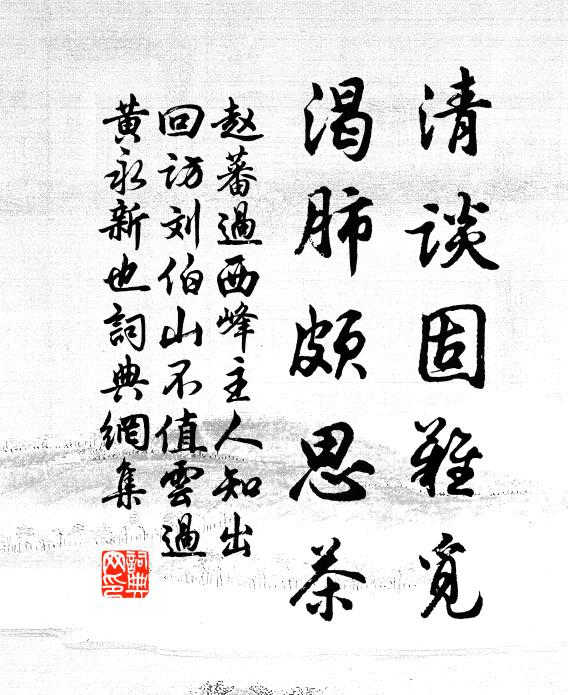 清谈固难觅
渴肺颇思茶
赵蕃過西峰主人知出
回访刘伯山不值雲過
黄永新也詞典網集
詞典
网印